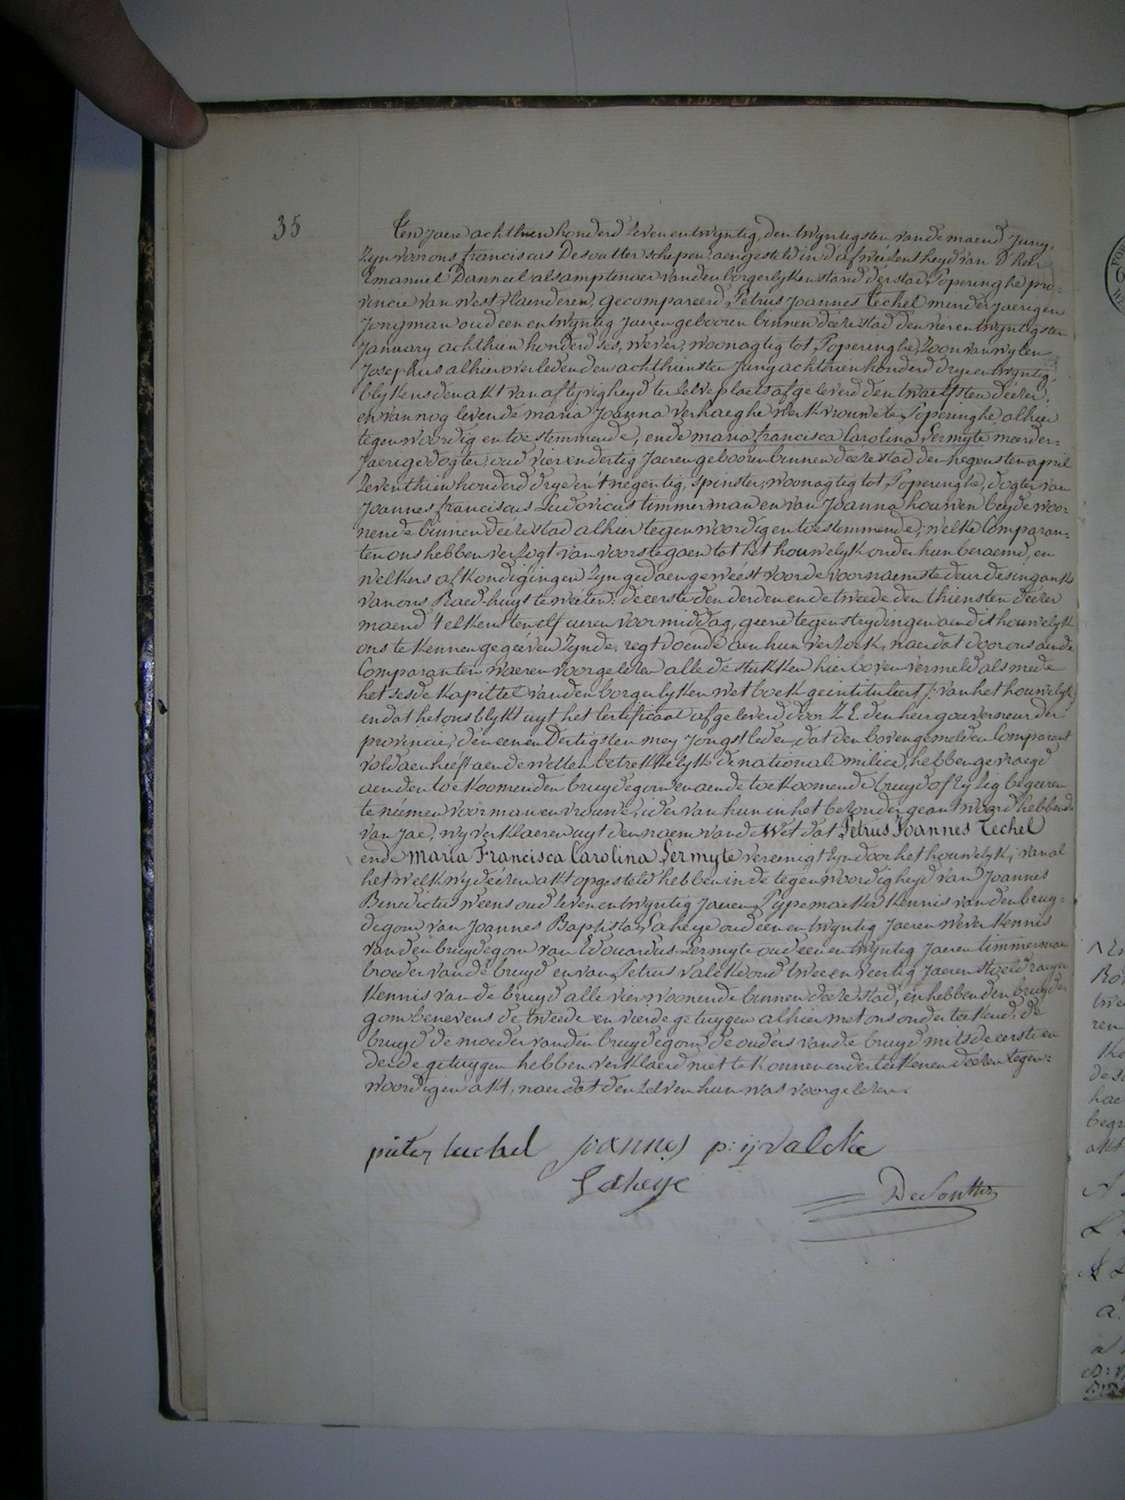 35
Ten jaere achthien honderd zeven en twyntig, den twyntigsten van de maend Juny,
zyn voor ons franciscus Desoutter schepen aengesteld in d'afweézensheyd van d'heer
Emanuel Danneel als amptenaer van den borgerlyken stand der stad Poperinghe pro-
vincie van west vlaenderen, gecompareerd Petrus Joannes Techel minderjaerigen
Jongman oud een en twyntig Jaeren gebooren binnen deéze stad den vier en twyntigsten
January achthien honderd ses, wever, woonagtig tot Poperinghe, Zoon van wylen
Josephus alhier overleden den achthiensten Juny achthien honderd dry en twyntig,
blykens den akt van aflyvigheyd ter zelve plaets afgeleverd den twaelfsten deézer,
en van nog levende maria Joanna verhaeghe werkvrouw te Poperinghe alhier
tegenwoordig en toestemmende, ende maria francisca Carolina Sermyte meerder-
Jaerige dogter, oud vier en dertig Jaeren gebooren binnen deéze stad den negensten april
zeventhien honderd drye en t'negentig, spinster, woonagtig tot Poperinghe, dogter van
Joannes franciscus Ludovicus timmerman en van Joanna houwen beyde woo-
nende binnen deéze stad alhier tegenwoordig en toestemmende; welke Comparan-
ten ons hebben verzogt van voorstegaen tot het houwelyk onder hun beraemd, en
welkers afkondigingen zyn gedaen geweést voor de voornaemste deur des ingangs
van ons Raed-huys te weéten: de eerste den derden en de tweede den thiensten deézer
maend t'elkens ten elf ueren voormiddag, geene tegenstrydingen aen dit houwelyk
ons te kennen gegeéven zynde, regt doende aen hun verzoek, naer dat door ons aen de
Comparanten waeren voorgelezen alle de stukken hier boven vermeld als mede
het sesde kapittel van den borgerlyken wetboek geintituleert: van het houwelyk,
en dat het ons blykt uyt het Certificaat afgeleverd door Z.E. den heer gouverneur der
provincie, den een en dertigsten mey Jongstleden, dat den bovengemelden Comparant
voldaen heéft aen de wetten betrekkelyk de nationale militie, hebben gevraegd
aen den toekoomenden bruydegom en aen de toekoomende bruyd of zy zig begeeren
te némen voor man en vrouwe, ider van hun in het bezonder geantwoord hebbende
van Jae, wy verklaeren uyt den naem van de Wet dat Petrus Joannes Techel
ende Maria Francisca Carolina Sermyte vereenigt zyn door het houwelyk; van al
het welk wy deézen akt opgesteld hebben in de tégenwoordigheyd van Joannes
Benedictus weens oud zeven en twyntig Jaeren Pypemaeker kennis van den bruy-
degom van Joannes Baptista Laheye oud een en twyntig Jaeren wever kennis
van den bruydegom van Edouardus Sermyte oud een en twyntig Jaeren timmerman
broeder van de bruyd en van Petrus valcke oud twee en veertig Jaeren stoeldraeyer
kennis van de bruyd alle vier woonende binnen deéze stad, en hebben den bruyde-
gom benevens de tweede en vierde getuygen alhier met ons onderteekend. de
bruyd de moeder van den bruydegom de ouders van de bruyd mits de eerste en
derde getuygen hebben verklaerd niet te konnen onderteekenen deézen tegen-
woordigen akt, naer dat den zelven hun was voorgelezen.
pieter techel Joannes p: ij valcke
Laheye
DeSoutter